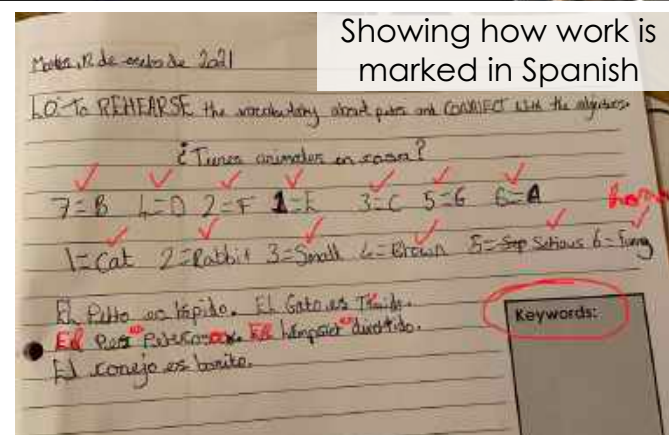 Showing how work is
marked in Spanish
de 2021
LO: To REHEARSE the vocabulary about pets and CONNECT with the adjectives.
¿Tienes animales en casa?
7=B 4=D 2=F 1=E 3=C 5=G 6=A
1=Cat 2=Rabbit 3=Small 4=Brown 5= Serious 6=Funny
El Perro es rápido. El Gato es
El Pez es El divertido.
El conejo es bonito.
Keywords: